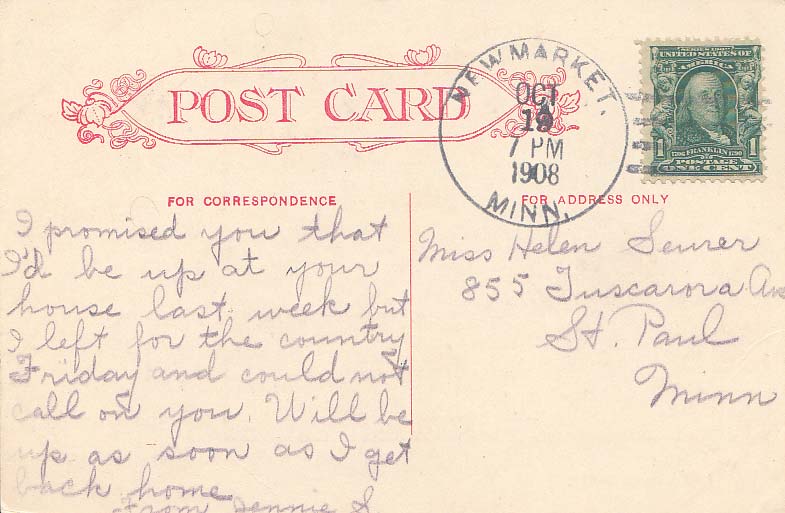 POST CARD
NEWMARKET.
OCT
19
7 PM
1908
MINN.
SERIES 1902
UNITED STATES OF
AMERICA
1 1706 FRANKLIN 1790 1
POSTAGE
ONE CENT
FOR CORRESPONDENCE
I promised you that
I'd be up at your
house last week but
I left for the country
Friday and could not
call on you. Will be
up as soon as I get
back home
From Jennie S.
FOR ADDRESS ONLY
Miss Helen Seurer
855 Tuscarora Ave
St. Paul
Minn